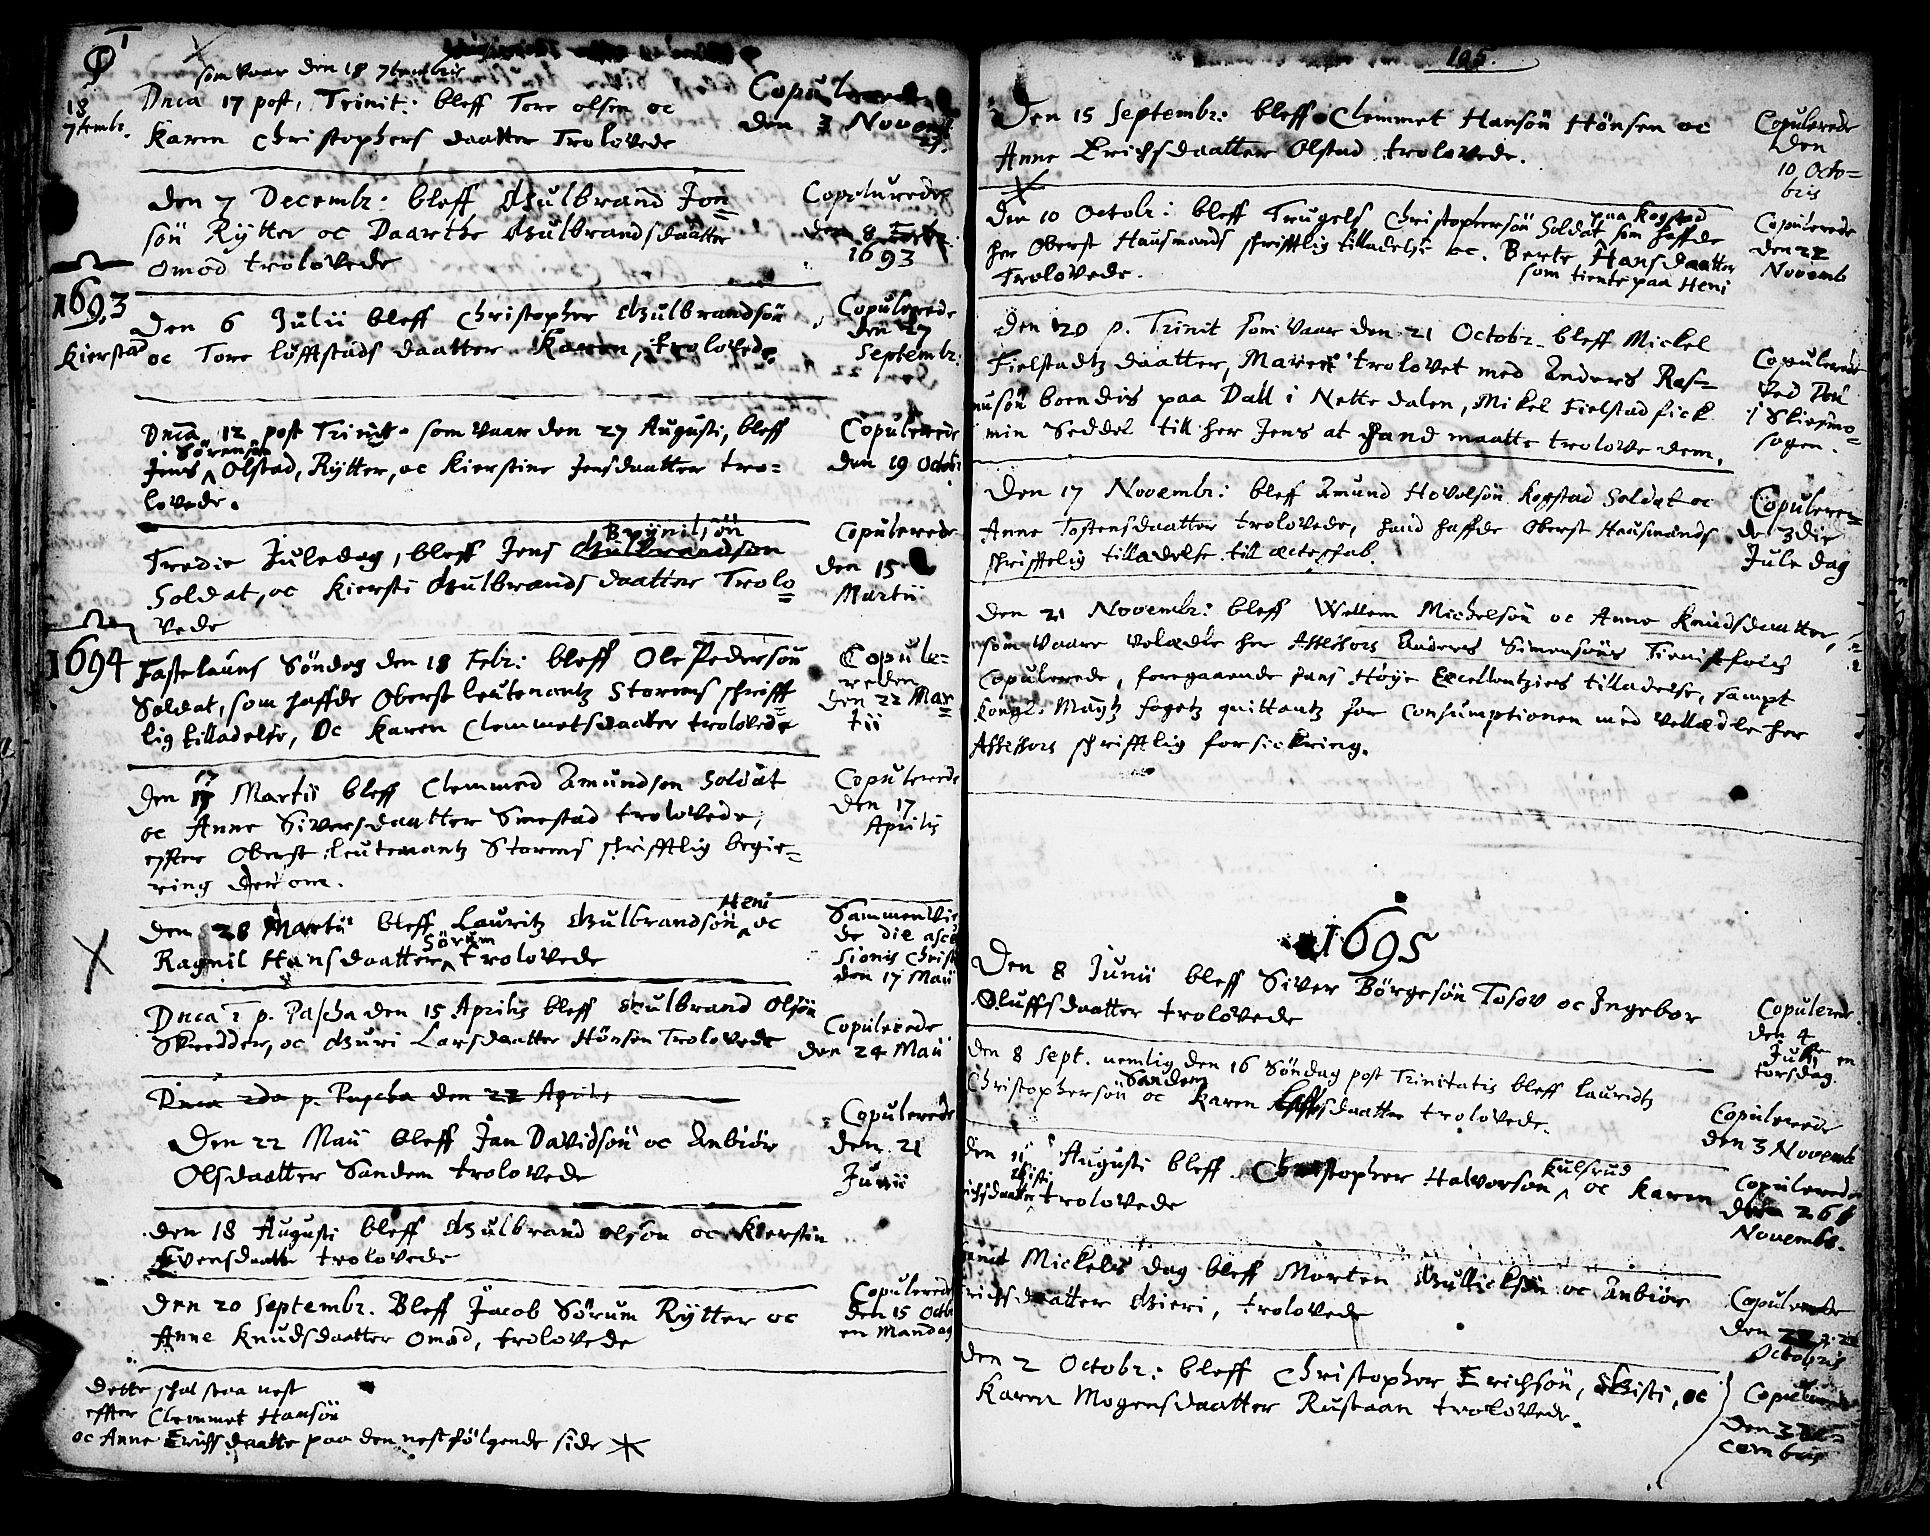 som vaar den 18 7tembris
18
7tembr.
Dnca 17 post, Trinit: bleff Tore olsen oc
Karen Christophers daatter Trolovede
Copulerede
den 3 Novemb
den 7 Decembr: bleff Gulbrand Jon=
sön Rÿtter oc Daarthe Gulbrandsdaatter
Omod trolovede
Copoluredes
den 8 Febr.
1693
1693
Kierstad
Den 6 Julii bleff Christopher Gulbrandsön
oc Tore löfftstads daatter Karen, trolovede
Copulerede
den 27
Septembr:
Dnca 12 post Trinit. som vaar den 27 Augusti, bleff
Sörensön
Jens ^ Olstad, Rÿtter, oc Kierstine Jensdaatter tro=
lovede.
Copulerede
den 19 Octobr
Brÿnilsön
Tredie Juledag, bleff Jens Gulbrandsön
Soldat, oc Kiersti Gulbrands daatter Trolo=
vede
Copulerede
den 15
Martii
1694
Fastelauns Söndag den 18 Febr: bleff Ole Pedersön
Soldat, som haffde Oberst leutenantz Storms schrifft=
lig tilladelse, Oc Karen Clemmetsdaatter trolovede
Copule=
reden
den 22 Mar=
tii
17
den Martii bleff Clemmed Amundsen Soldat
oc Anne Siversdaatter Smestad trolovede,
effter Oberst leutenantz Storms schrifftlig begie=
ring der om.
Copulerede
den 17
Aprilis
Heni
den 28 Martii bleff Lauritz Gulbrandsön ^ oc
Sörum
Ragnil Hansdaatter ^ trolovede
Sammenvie
de die asce
sionis Christi
den 17 Maii
Dnca 1 p. Pascha den 15 Aprilis bleff Gulbrand Olsön
Skredder, oc Guri Larsdaatter Hönsen Trolovede
Copulerede
den 24 Maii
Dnca 2da p. Pascha den 22 Aprilis
Den 22 Maii bleff Jan Davidsön oc Anbiör
Olsdaatter Sandem trolovede
Copulerede
den 21
Junii
den 18 Augusti bleff Gulbrand olsön oc Kierstin
Evensdaatte trolovede
den 20 Septembr. Bleff Jacob Sörum Rÿtter oc
Anne Knudsdaatter Omod, trolovede
Copulerede
den 15 Octb
en Mandag
dette schal staa nest
effter Clemmet Hansön
oc Anne Erichsdaatte paa den nestfölgende side
105.
Den 15 Septembr: bleff Clemmet Hansön Hönsen oc
Anne Erichsdaatter Olstad trolovede.
Copulerede
den
10 Octo=
bris
paa Kogstad
den 10 Octobr: bleff Trugels Christophersön Soldat som haffde
her Oberst Hausmands schrifftlig tilladelse oc. Berte Hansdaatter
Trolovede.
som tiente paa Heni
Copulerede
den 22
Novemb
den 20 p. Trinit som vaar den 21 Octobr. bleff Mickel
Fielstadtz daatter, Maren trolovet med Anders Ras=
musön boendis paa Dall i Nettedalen, Mikel Fielstad fick
min Seddel till her Jens at hand maatte trolove dem.
Copulerede
ved Nu
i Skiesmo=
sogen.
Den 17 Novembr: bleff Amund Hovolsön Kogstad Soldat oc
Anne Tostensdaatter trolovede, hand haffde Oberst Hausmands
schrifftelig tilladelse till ecteschab.
Copuleren=
de 3die
Jule dag
den 21 Novembr: bleff Wellem Michelsön oc Anne Knudsdaatter,
som vaare velædle her Assessors Anders Simensöns Tienistefolch
Copulerede, foregaaende hans Höÿe Excellentziers tilladelse, sampt
Kongl: Maÿtz fogetz quittantz for Consumptionen med Vellædle her
Assessors schrifftlig forsickring.
1695
Den 8 Junii bleff Siver Börgesön Tosov oc Ingebor
Oluffsdaatter trolovede
Copulerede
den 4
Julii en
torsdag.
den 8 Sept. nemlig den 16 Söndag post Trinitatis bleff Lauridtz
Sandem
Christophersön oc Karen daatter trolovede.
Copulerede
den 3 Novemb
den 11 Augusti bleff Christopher Halvorsön ^ oc Karen
Kulsrud
ichsdaatter trolovede
Copulerede
den 26
Novembr.
Mickelis dag bleff Morten Gullicksön oc Anbiör
richsdaatter Gieri, trolovede
Copulerede
den 22
Octobris
den 2 Octobr: bleff Christopher Erichsön, Gisti, oc
Karen Mogensdaatter Rustaan trolovede.
Copulerede
den 3 De=
cembris